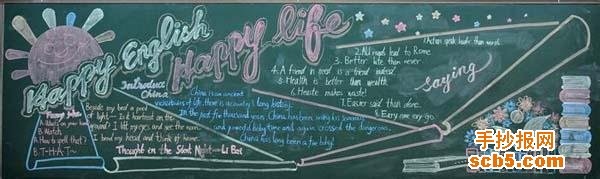 Happy English
Happy life
Introduce
China
Funny joke
A: What's on your hand
B: Watch.
A: How to spell that?
B: T-H-A-T~
Beside my bed a pool
of light—— Is it hoarfrost on the
ground? I lift my eyes and see the moon,
I bend my head and think of home.
Thought in the Silent Night——Li Bai
China is an ancient
long history.
In the past five thousand years, China has been
and again crossed the dangerous,
China has long been a fei baby!
1. Action speak louder than words.
2. All roads lead to Rome
3. Better late than never.
4. A friend in need is a friend indeed.
5. Health is better than wealth.
6. Haste makes waste!
7. Easier said than done.
8. Every one may go.
saying
手抄报网
scb5.com